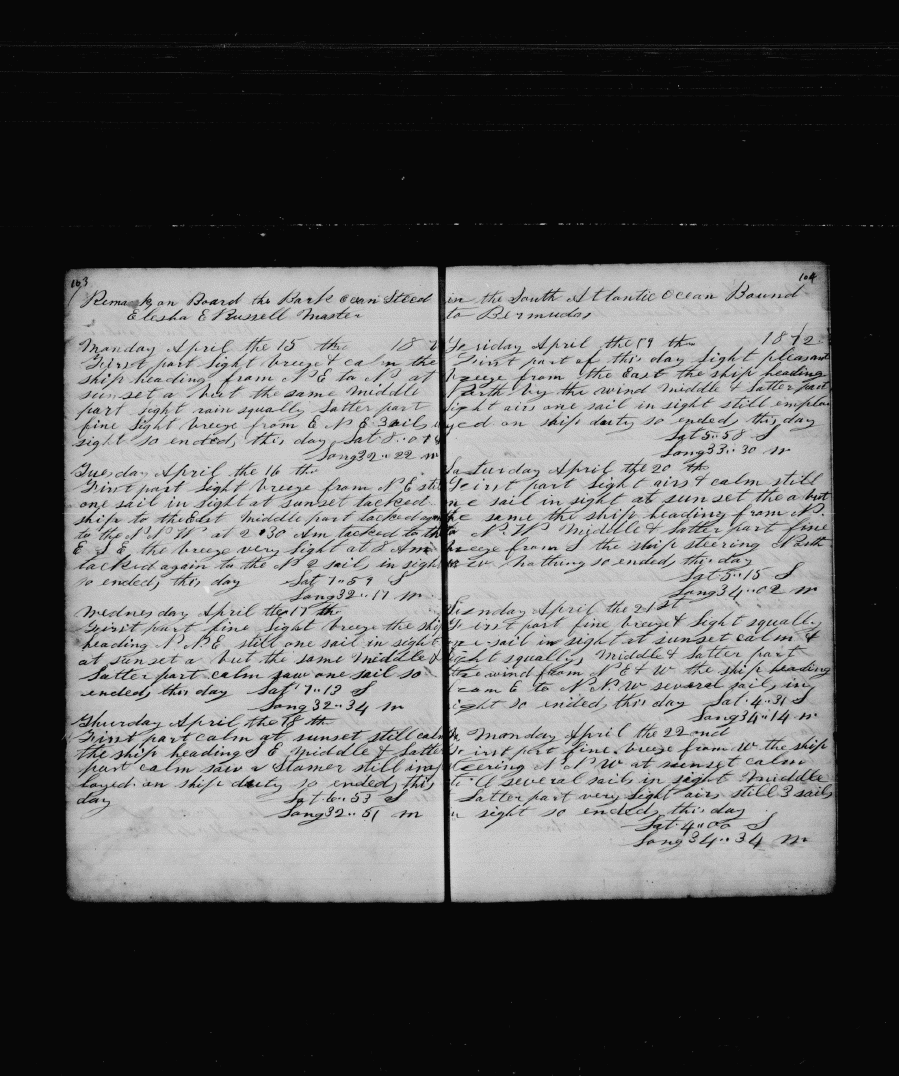 103
Remarks on Board the Bark Ocean Steed
Elesha E Russell Master
Monday April the 15 th 187
First part light breeze & calm the
ship heading from N E to N at
sunset a but the same Middle
part light rain squally latter part
fine light breeze from E N E 3 sails in
sight so ended, this day Lat 8..01 S
Long 32..22 W
Tuesday April the 16 th
First part light breeze from N E still
one sail in sight at sunset tacked
ship to the East Middle part tacked again
to the N N W at 2..30 Am tacked to the
E S E the breeze very light at 8 Am
tacked again to the N 2 sails in sight
so ended, this day Lat 7..59 S
Long 32..17 W
Wednesday April the 17 th
First part fine light breeze the ship
heading N N E still one sail in sight
at sunset a but the same Middle &
Latter part calm saw one sail so
ended, this day Lat 7..13 S
Long 32..34 W
Thursday April the 18 th
First part calm at sunset still calm
the ship heading S E Middle & Latter
part calm saw a Stamer still imp
loyed on ship duty so ended, this
day Lat 6..53 S
Long 32..51 W
104
in the South Atlantic Ocean Bound
to Bermudas
Friday April the 19 th 1872
First part of this day light pleasant
breeze from the East the ship heading
North by the wind Middle & latter part
light airs one sail in sight still emplo
yed on ship duty so ended, this day
Lat 5..58 S
Long 33..30 W
Saturday April the 20 th
First part light airs & calm still
one sail in sight at sunset the a but
the same the ship heading from N.
to N. W Middle & latter part fine
breeze from S the ship steering North
nothing so ended, this day
Lat 5..15 S
Long 34..02 W
Sunday April the 21 st
First part fine breeze & light squally
one sail in sight at sunset calm &
light squally Middle & latter part
the wind from N E & W the ship heading
from E to N N. W several sails in
sight so ended, this day Lat 4..31 S
Long 34..14 W
Monday April the 22 ond
First part fine breeze from W the ship
steering N N W at sunset calm
several sails in sight Middle
Latter part very light airs still 3 sails
in sight so ended, this day
Lat 4..00 S
Long 34..34 W